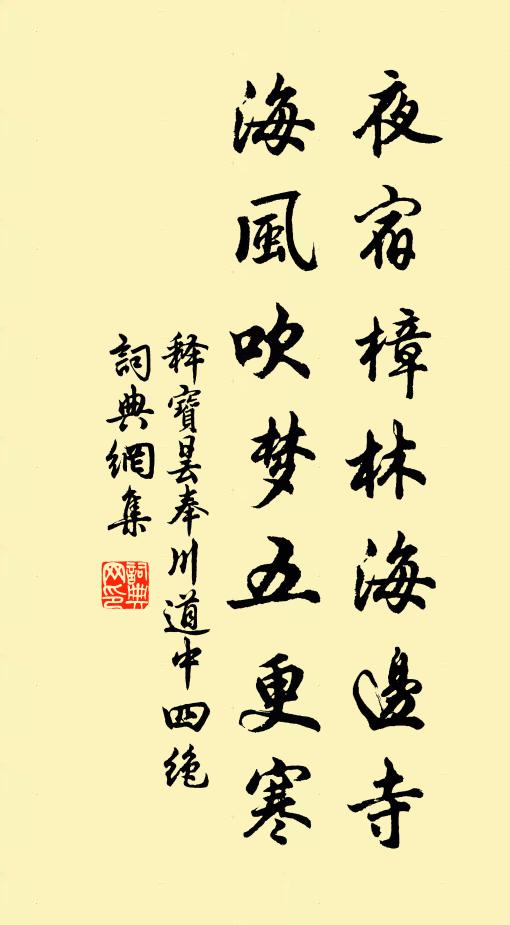 夜宿樟林海邊寺
海風吹梦五更寒
释寶曇奉川道中四绝
詞典網集
詞典网印